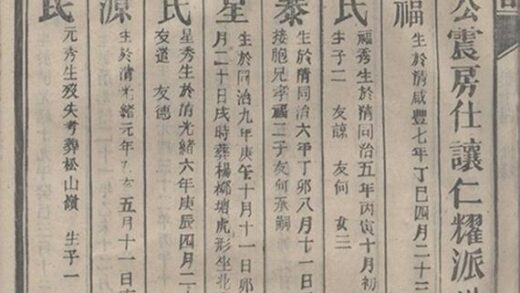 公震房仕讓仁耀派
福
生於清咸豐七年丁巳四月二十三
氏
福秀生於清同治五年丙寅十月初
生子二 友諒 友何 女三
泰
生於清同治六年丁卯八月十一日
接胞兄孝福二子友何承嗣
星
生於同治九年庚午十月十一日卯
月二十日戌時葬楊柳塘虎形坐北
氏
星秀生於清光緒六年庚辰四月二
友道 友德
源
生於清光緒元年乙亥五月十一日
氏
元秀生歿失考葬松山嶺 生子一